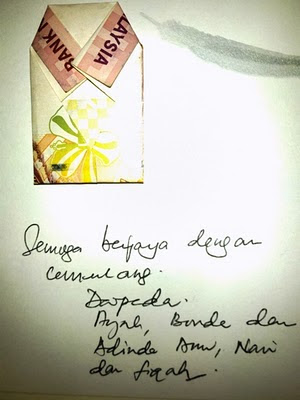 BANK N
LAYSIA
Semoga berjaya dengan
cemerlang.
Daripada.
Ayah, Bonda dan
Adinda Ann, Nani
dan Fiqah.